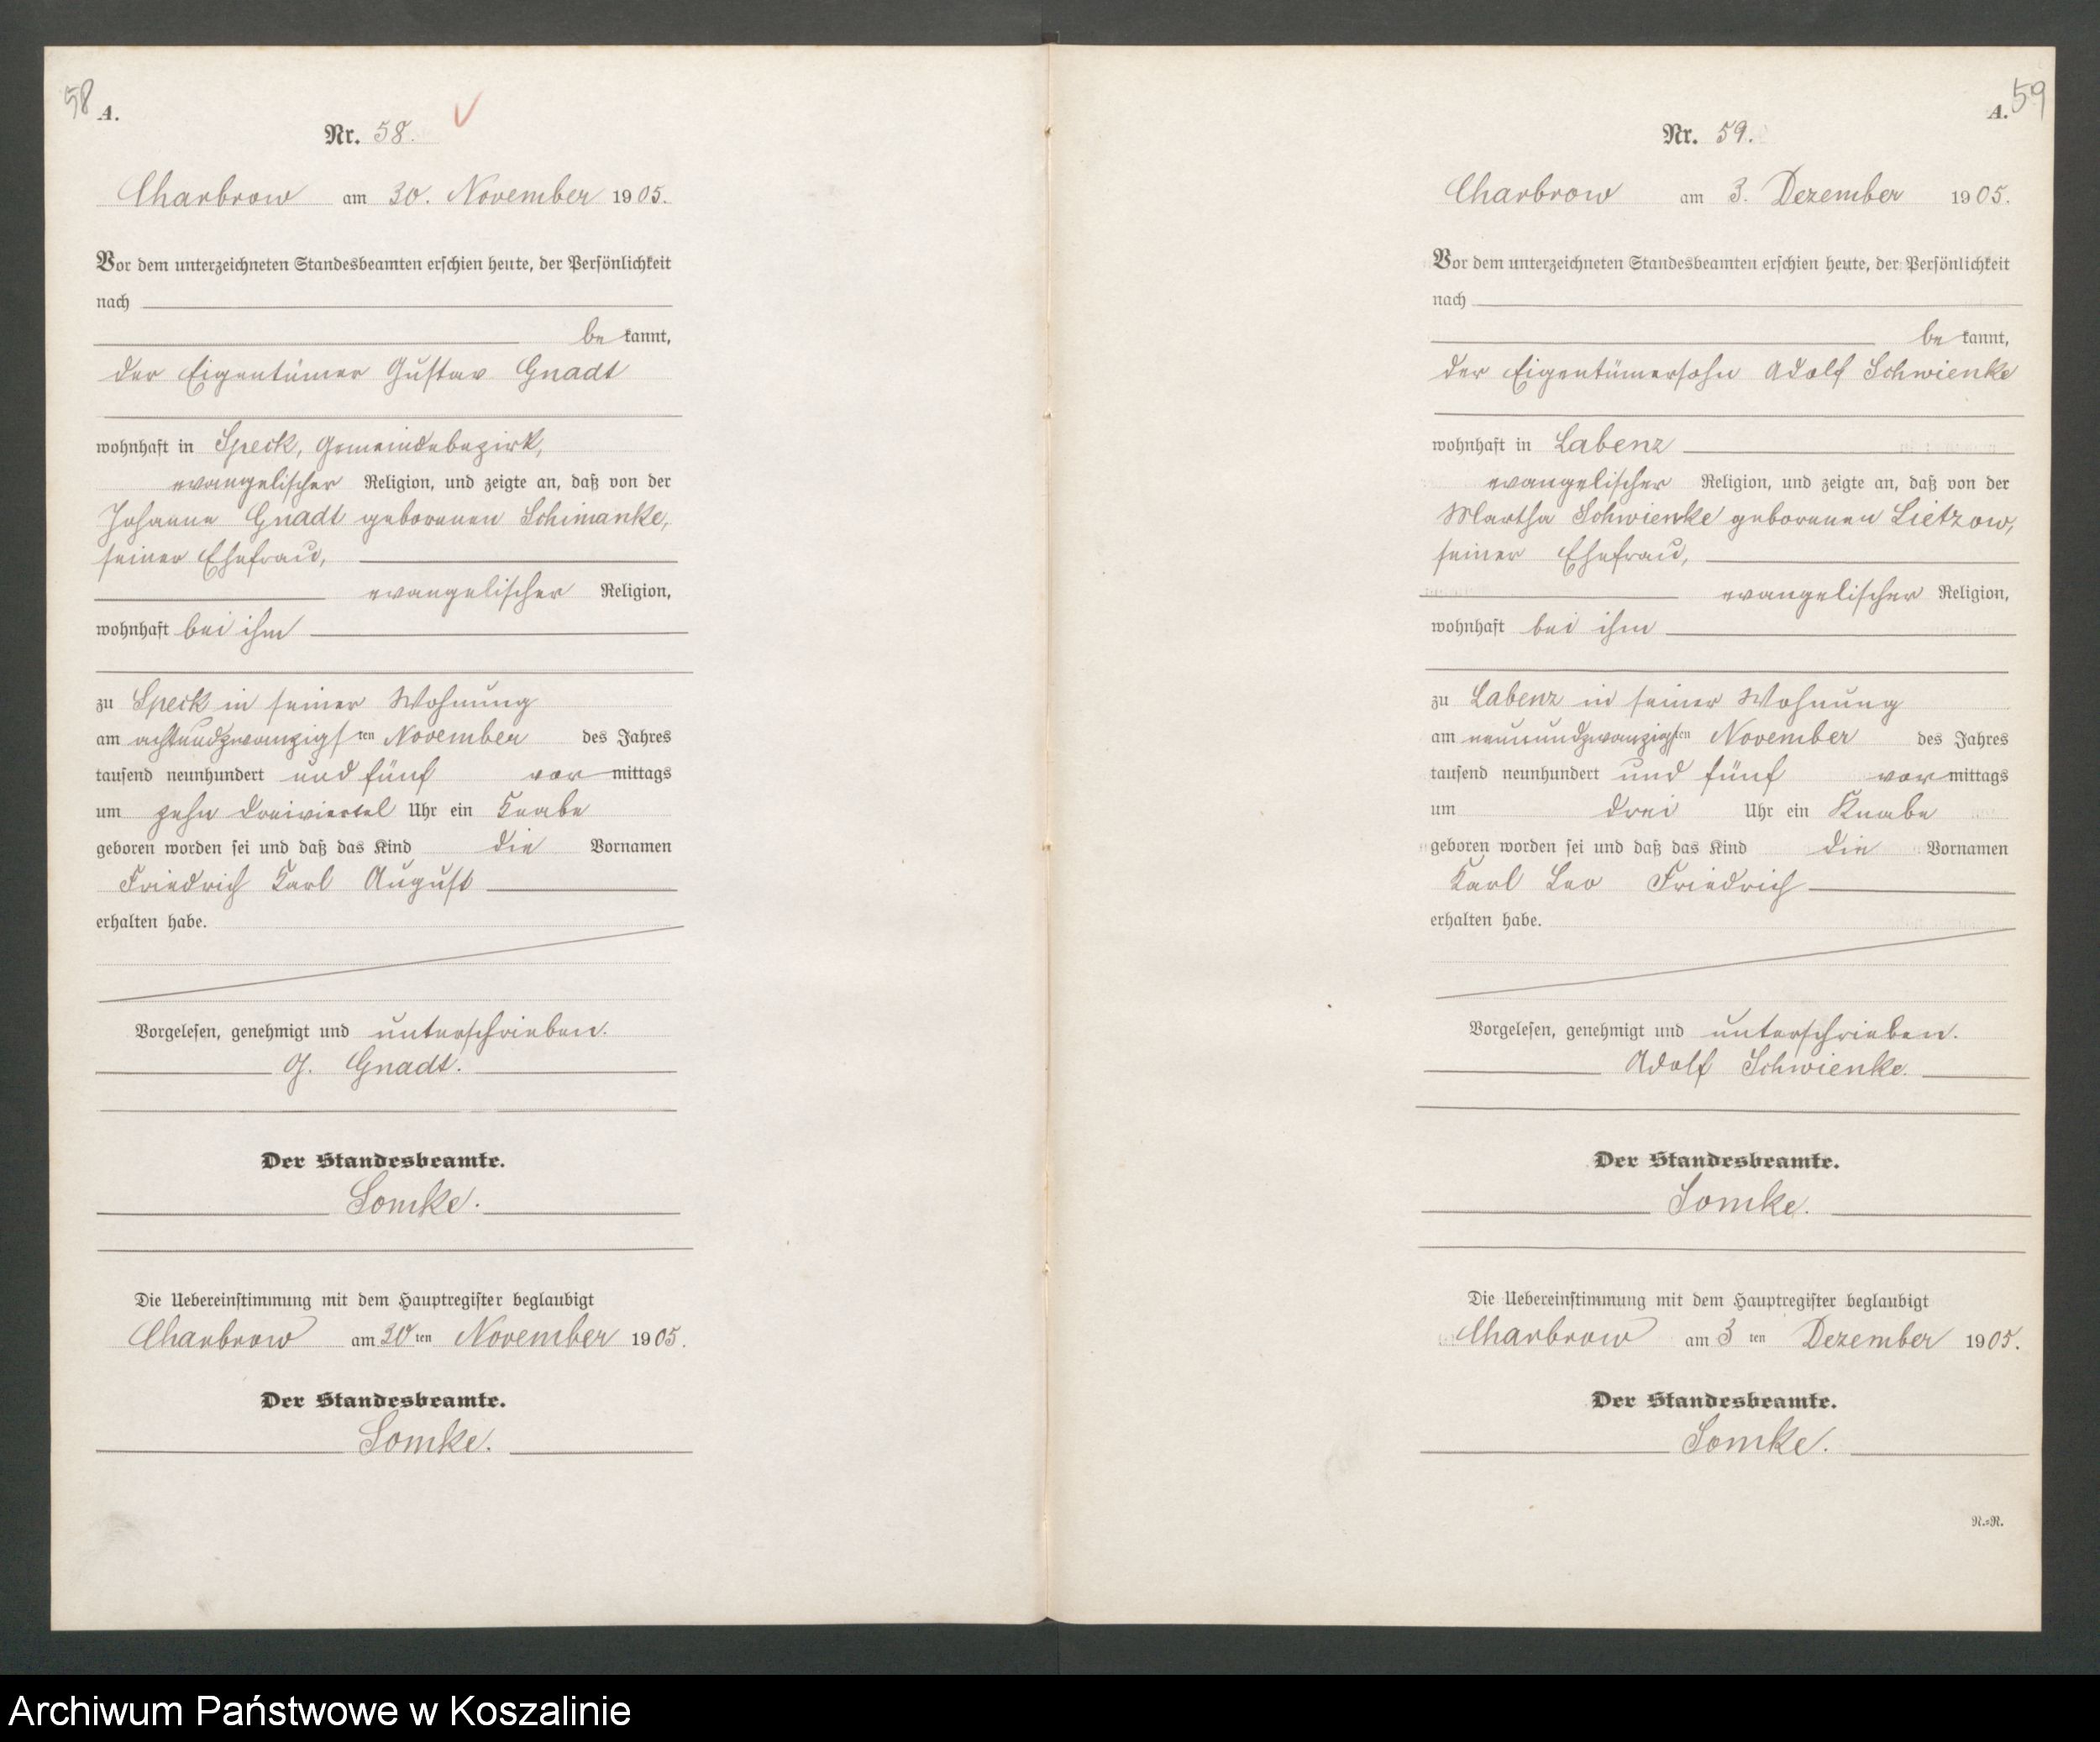 58
A.
Nr. 58.
Charbrow am 30. November 1905.
Vor dem unterzeichneten Standesbeamten erschien heute, der Persönlichkeit
nach
be kannt,
der Eigentümer Gustav Gnadt
wohnhaft in Speck, Gemeindebezirk,
evangelischer Religion, und zeigte an, daß von der
Johanne Gnadt geborenen Schimanke,
seiner Ehefrau,
evangelischer Religion,
wohnhaft bei ihm
zu Speck in seiner Wohnung
am achtundzwanzigsten November des Jahres
tausend neunhundert und fünf vor mittags
um zehn dreiviertel Uhr ein Knabe
geboren worden sei und daß das Kind die Vornamen
Friedrich Karl August
erhalten habe.
Vorgelesen, genehmigt und unterschrieben.
G. Gnadt.
Der Standesbeamte.
Lomke.
Die Uebereinstimmung mit dem Hauptregister beglaubigt
Charbrow am 30ten November 1905.
Der Standesbeamte.
Lomke.
59
A.
Nr. 59.
Charbrow am 3. Dezember 1905.
Vor dem unterzeichneten Standesbeamten erschien heute, der Persönlichkeit
nach
be kannt,
der Eigentümersohn Adolf Schwienke
wohnhaft in Labenz
evangelischer Religion, und zeigte an, daß von der
Martha Schwienke geborenen Lietzow,
seiner Ehefrau,
evangelischer Religion,
wohnhaft bei ihm
zu Labenz in seiner Wohnung
am neunundzwanzigsten November des Jahres
tausend neunhundert und fünf vor mittags
um drei Uhr ein Knabe
geboren worden sei und daß das Kind die Vornamen
Karl Leo Friedrich
erhalten habe.
Vorgelesen, genehmigt und unterschrieben.
Adolf Schwienke.
Der Standesbeamte.
Lomke.
Die Uebereinstimmung mit dem Hauptregister beglaubigt
Charbrow am 3 ten Dezember 1905.
Der Standesbeamte.
Lomke.
N.=R.
Archiwum Państwowe w Koszalinie